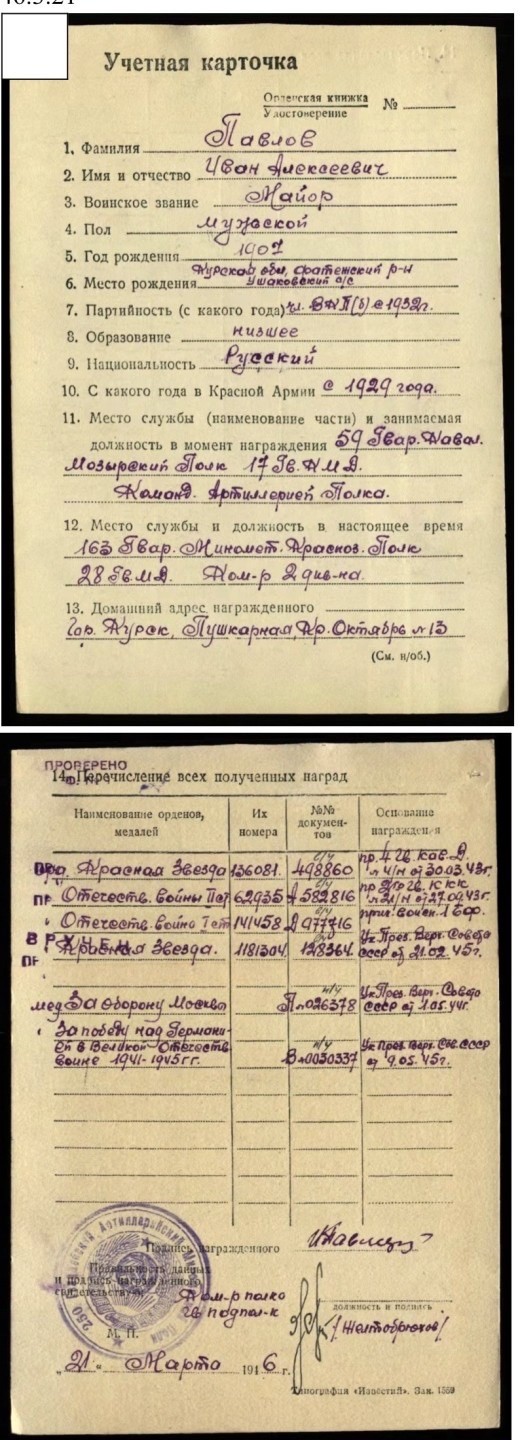 Учетная карточка
Орденская книжка №
Удостоверение
1. Фамилия Павлов
2. Имя и отчество Иван Алексеевич
3. Воинское звание Майор
4. Пол мужской
5. Год рождения 1907
Курская обл, Фатежский р-н
6. Место рождения Ушаковский с/с
7. Партийность (с какого года) чл. ВКП(б) с 1932г.
8. Образование низшее
9. Национальность Русский
10. С какого года в Красной Армии с 1929 года.
11. Место службы (наименование части) и занимаемая
должность в момент награждения 59 Гвар. Кавал.
Мозырский Полк 17 Гв. К.М.Д.
Команд. Артиллерией Полка.
12. Место службы и должность в настоящее время
163 Гвар. Миномет. Красноз. Полк
28 Гв М.Д. Ком-р 2 див-на.
13. Домашний адрес награжденного
Гор. Курск, Пушкарная, Кр. Октябрь № 13
(См. н/об.)
ПРОВЕРЕНО
14. Перечисление всех полученных наград
Наименование орденов, медалей
Их номера
№№ документов
Основание награждения
Красная Звезда 136081. с/у 498860 пр. 4 Гв. Кав. Д. № 4/н от 30.03.43г.
Отечеств. Войны II ст 62935 А 582816 № 21/н от 27.09.43г.
Отечеств. Война I ст 141458 Д 977716
ВРУЧЕН
Красная Звезда. 1181304 128364 Ук През. Верх. Совета СССР от 21.02.45г.
мед За оборону Москвы н/у П№026378 Ук През. Верх. Совета СССР от 1.05.44г.
" За победу над Германи-
ей в Великой Отечеств
войне 1941-1945гг. н/у В№0030337 Ук През. Верх. Сов. СССР от 9.05.45г.
Подпись награжденного
Правильность данных
и подпись награжденного
свидетельствую
Ком-р полка
гв подпол-к
должность и подпись
/Желтобрюхов/
М. П.
"21" Марта 1946 г.
Типография «Известий». Зак. 1569